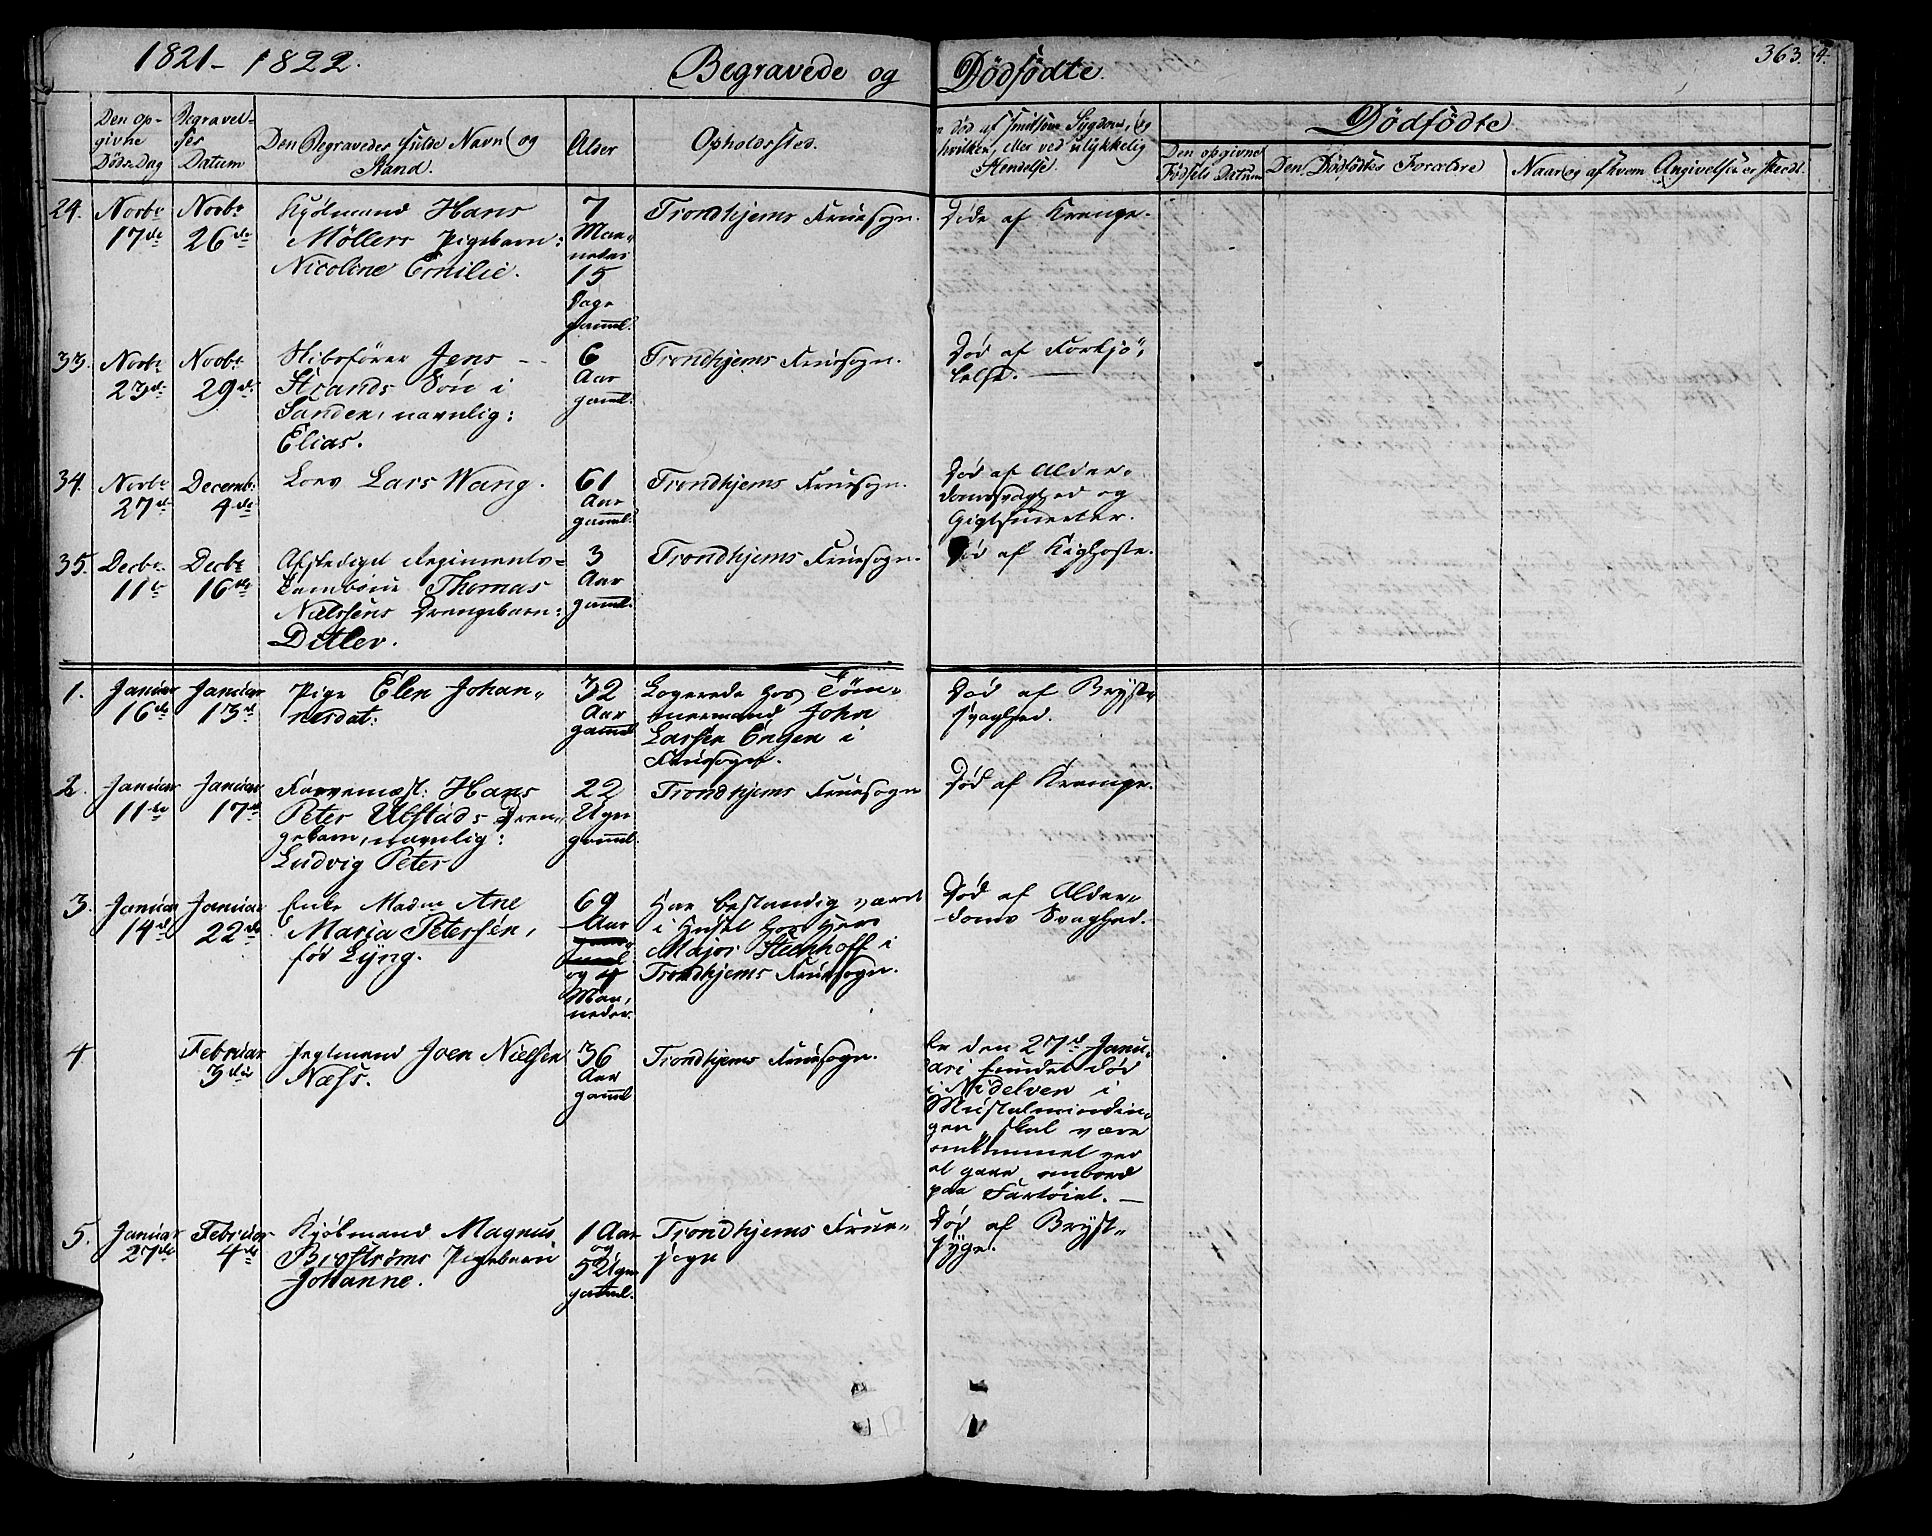 1821-1822.
Begravede og Dödfödte.
363.
Den opgivne Dödsdag
Begravelses Datum
Den Begravedes fulde Navn og Stand.
Alder
Opholdssted.
Död af smitsom Sygdom,
eller ved ulykkelig Hendelse.
Dödfödte.
Den opgivne Födsels Datum
Den Dödfödtes Forældre
Naar og af hvem Angivelsen er skeedt.
24. Novbr 17de
Novbr 26de
Kjølmand Hans
Møllers Pigebarn:
Nicoline Emilie.
7 Maaneder 15 Dage gammel.
Trondhjems Fruesogn.
Døde af Krampe.
33. Novbr 23de
Novbr 29de
Skibsfører Jens
Strands Søn i
Sanden, navnlig:
Elias.
6 Aar gamml.
Trondhjems Fruesogn.
Død af Forkjø-
lelse.
34. Novbr 27de
Decembr 4de
Lars Wang.
61 Aar gamml.
Trondhjems Fruesogn.
Død af Alder-
domssvaghed og
Gigtsmerter.
35. Decbr 11te
Decbr 16de
Afskediget Regiments-
Tambour Thomas
Nielssens Drengebarn:
Ditlev.
3 Aar gamml.
Trondhjems Fruesogn.
Død af Kighoste.
1. Januar 16de
Januar 13de
Pige Elen Johan-
nesdat:
32 Aar gamml
Logerede hos Tøm-
mermand John
Larssen Engen i
Fruesogn.
Død af Bryst-
svaghed.
2. Januar 11te
Januar 17de
Farvemest: Hans
Peter Ulstads Dren-
gebarn, navnlig:
Ludvig Peter
22 Uger gamml.
Trondhjems Fruesogn
Død af Krampe.
3. Januar 14de
Januar 22de
Enke Madm Ane
Maria Petersen,
fød Lyng.
69 Aar
og 4 Maaneder.
Har bestandig været
i Huset hos Herr
Major Steenhoff i
Trondhjems Fruesogn.
Død af Alder-
doms Svaghed.
4.
Februar 3die
Jegtmand Joen Nielsen
Næss.
36 Aar gamml
Trondhjems Fruesogn.
Er den 27de Janu-
ari funden død
i Nidelven i
gen, skal være
omkommet ved
at gaae ombord
paa Fartøiet.
5. Januar 27de
Februar 4de
Kjøbmand Magnus
Brostrøms Pigebarn
Johanne.
1 Aar og 5 Uger gamml.
Trondhjems Frue-
sogn
Død af Bryst-
syge.